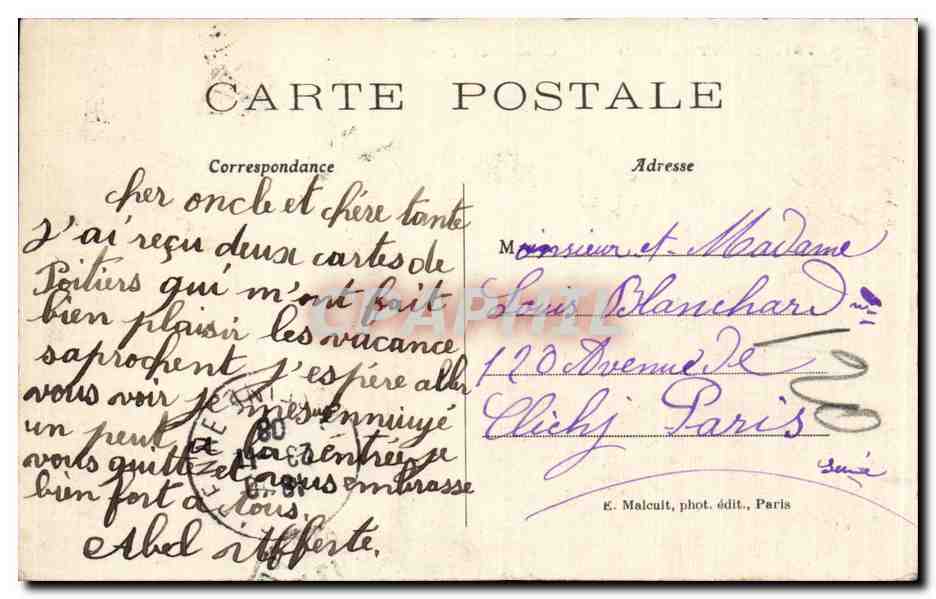 CARTE POSTALE
Correspondance
Adresse
cher oncle et chère tante
J'ai reçu deux cartes de
Poitiers qui m'ont fait
bien plaisir les vacance
saprochent j'espère aller
vous voir je mes ennuiyé
un peut a la rentrée je
vous quitte et vous embrasse
bien fort a tous.
Abel
Monsieur et Madame
Louis Blanchard
120 Avenue de
Clichj Paris
Seine
120
E. Malcuit, phot. édit., Paris
CPAPHIL